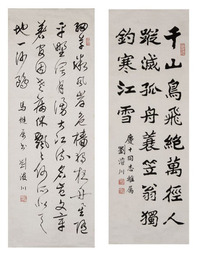 千山鳥飛絕萬徑人
蹤滅孤舟蓑笠翁獨
釣寒江雪
同志雅屬
細草微風岸危檣獨夜舟星隨
平野闊月湧大江流名豈文章
著官因老病休飄飄何所似天
地一沙鷗